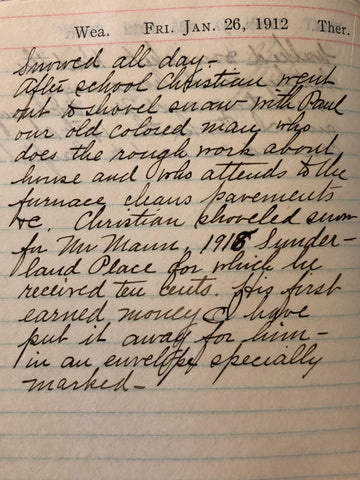 Wea. FRI. JAN. 26, 1912 Ther.
Snowed all day –
After school Christian went
out to shovel snow with Paul
our old colored man who
does the rough work about
house and who attends to the
furnace cleans pavements
&c. Christian shoveled snow
for Mr Mann, 1918 Sunder-
land Place for which he
received ten cents. His first
earned money I have
put it away for him –
in an envelope specially
marked –